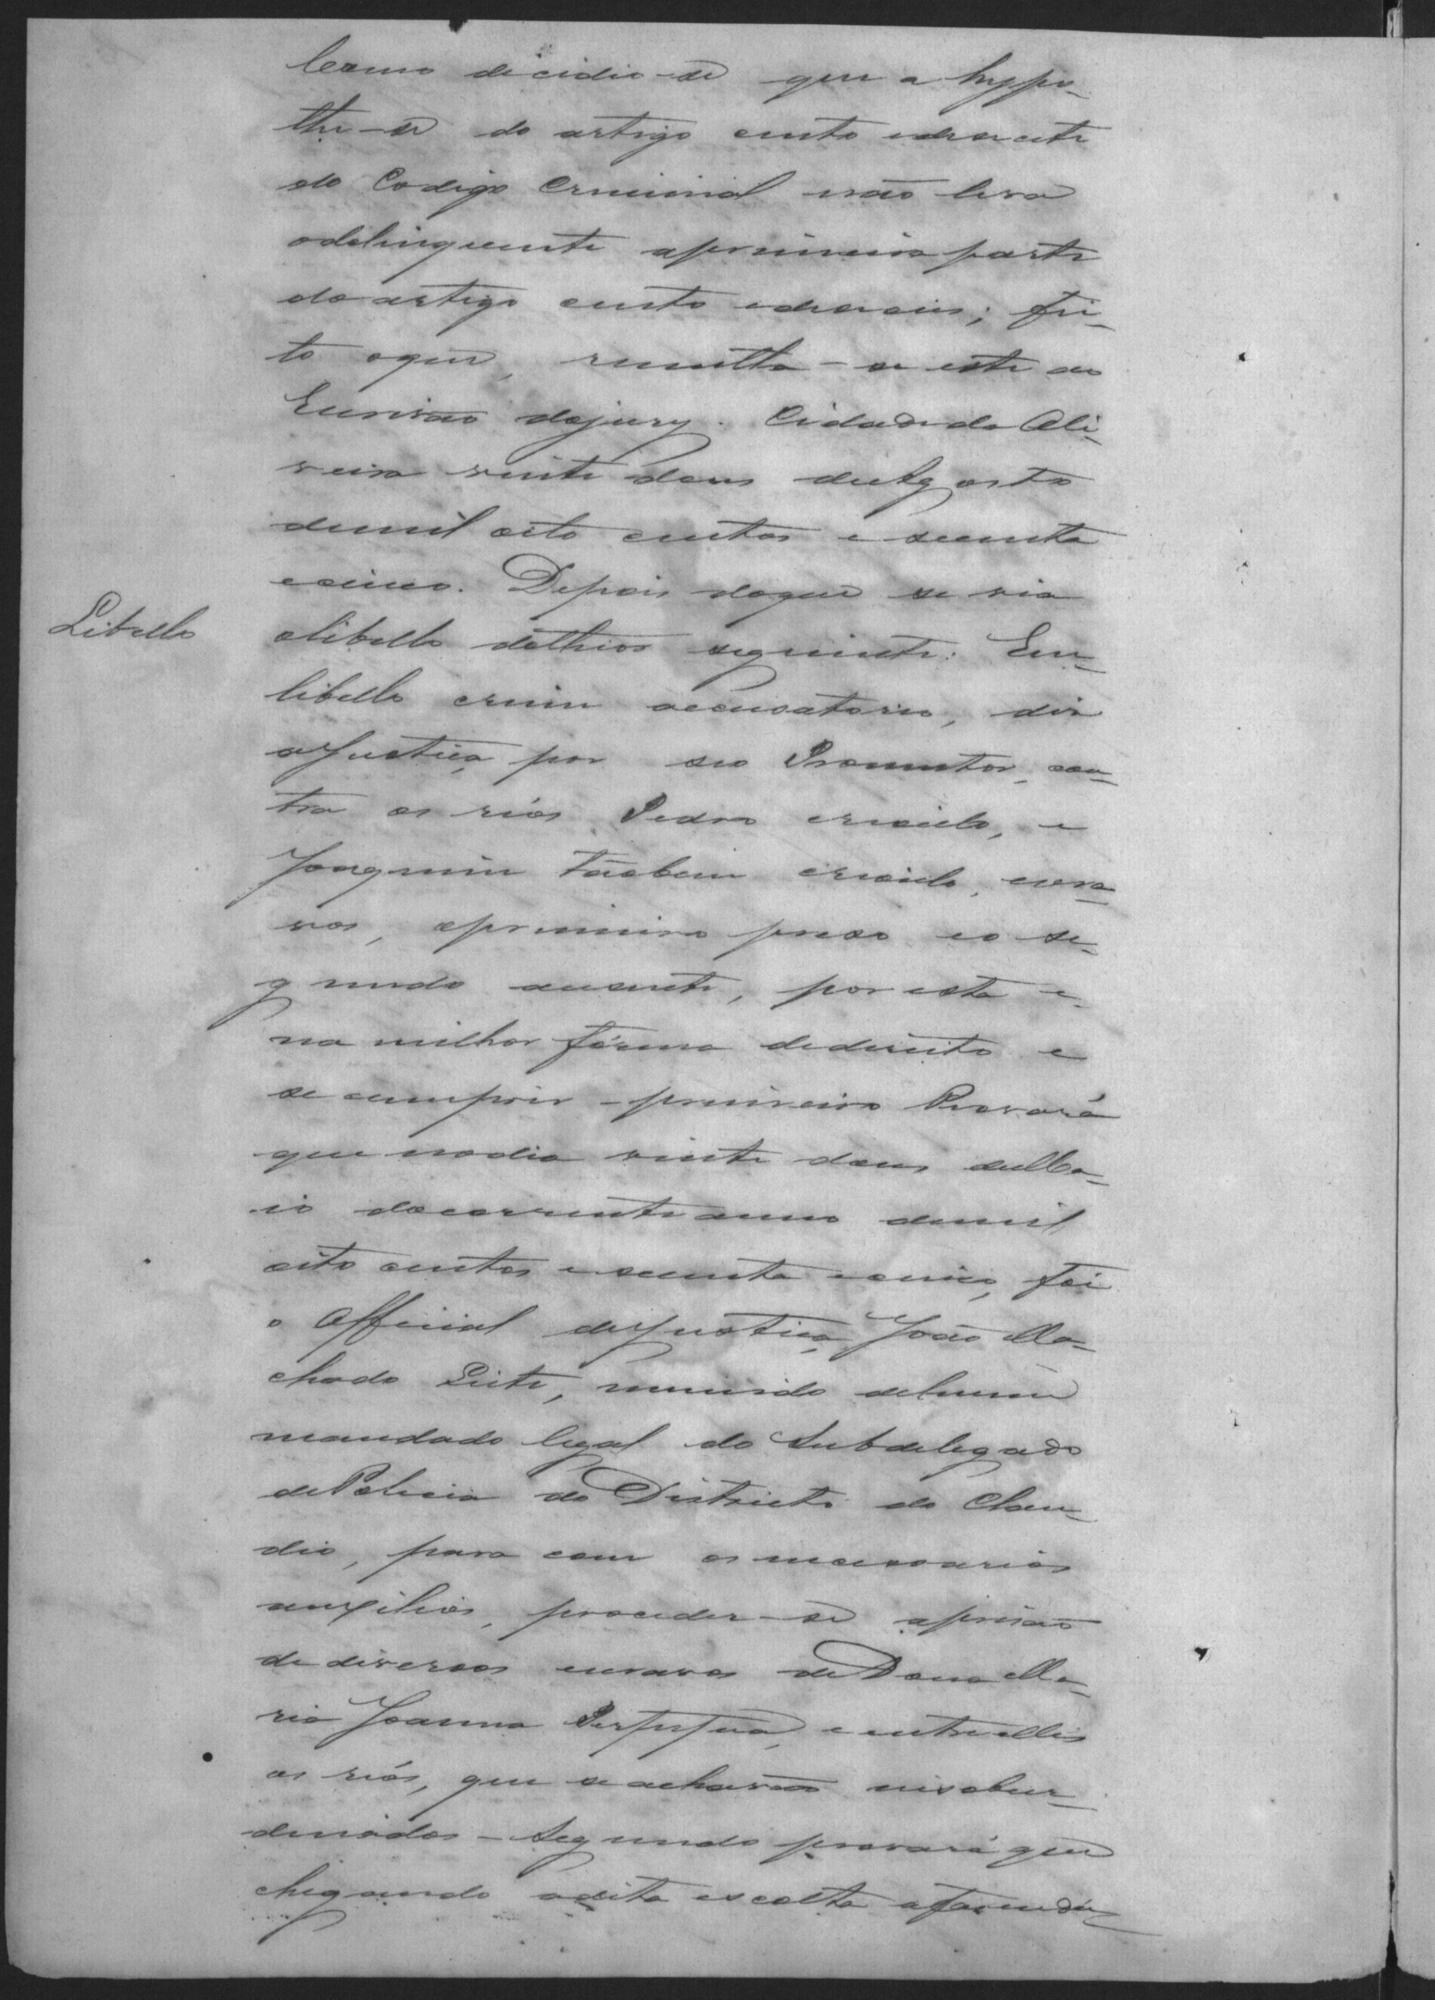 termo decidio-se que a hypo-
the-se do artigo cento e dezecete
do Codigo Criminal não leva
o delinquente a primeira parte
do artigo cento e dezeceis; fei-
to o que, remetta-se este ao
Escrivão do jury. Cidade da Oli-
veira vinte dous de Agosto
de mil oito centos e secenta
e cinco. Depois do que se via
Libello
o libello do theor seguinte: Em
libello crime accusatorio, diz
a Justiça por seo Promotor, con-
tra os réos Pedro crioulo, e
Joaquim tãobem crioulo, escra-
vos, o primeiro preso e o se-
gundo ausente, por esta e
na milhor fórma de direito e
se cumprir - primeiro Provará
que no dia vinte dous de Ma-
io do corrente anno de mil
oito centos e secenta e cinco, foi
o Official de Justiça João Ma-
chado Leite, munido de hum
mandado legal do Subdelegado
de Policia do Districto do Clau-
dio, para com os necessarios
auxilios, proceder-se a prisão
de diversos escravos de Dona Ma-
ria Joanna Perpetua, e entre elles
os réos, que se achavão insobor-
denados - Segundo provará que
chegando a dita escolta a fazenda